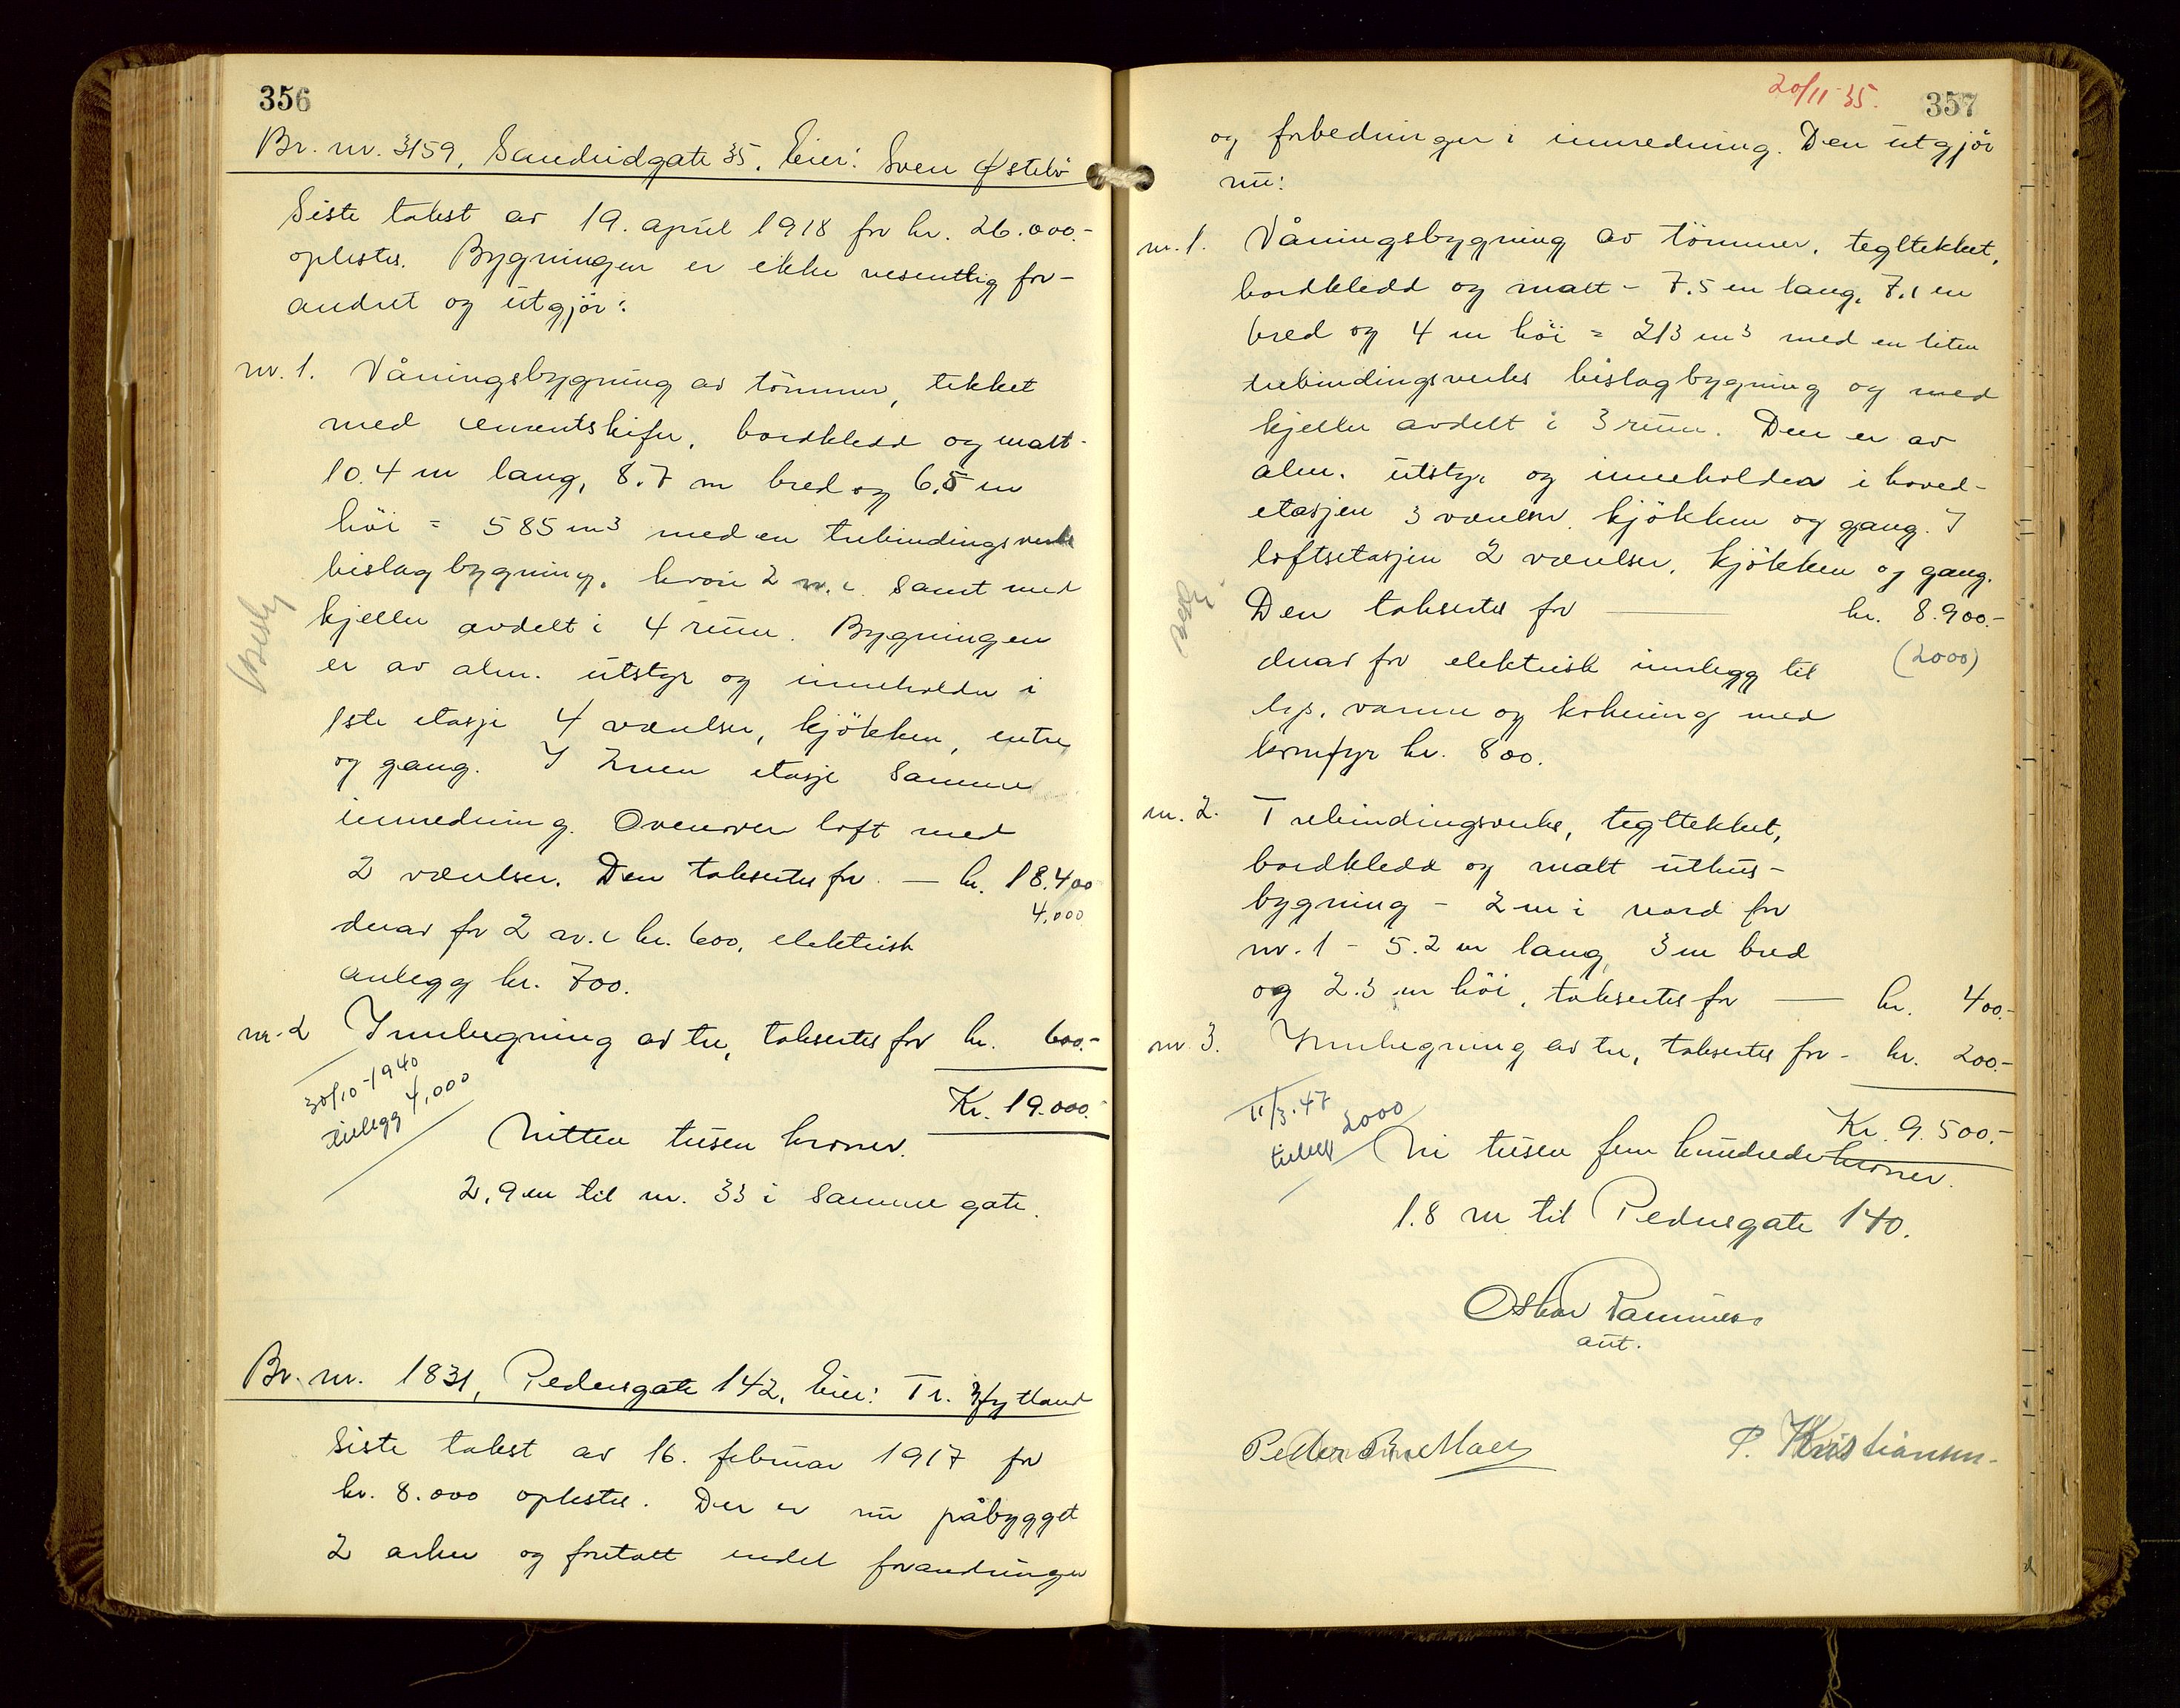 356
Br. nr. 3159, Sandeidgate 35. Eier: Sven Østebö
Siste takst av 19. april 1918 for kr. 26.000.-
oplestes. Bygningen er ikke vesentlig for-
andret og utgjör:
nr. 1. Våningsbygning av tömmer, tekket
med cementskifer, bordkledd og malt-
10.4 m lang, 8.7 m bred og 6.5 m
höi = 585 m3 med en trebindingsverks
bislagbygning, hvori 2 w.c. samt med
kjeller avdelt i 4 rum. Bygningen
er av alm. utstyr og inneholder i
1ste etasje 4 værelser, kjökken, entre
og gang. I 2nen etasje samme
innredning. Ovenover loft med
2 værelser. Den takseres for — kr. 18.400
4.000
derav for 2 w.c kr. 600, elektrisk
anlegg kr. 700.
nr. 2 Innhegning av tre, takseres for kr. 600.-
30/10-1940
tillegg 4,000
Kr. 19.000.-
Nitten tusen kroner.
2,9 m til nr. 33 i samme gate.
Br. nr. 1831, Pedersgate 142, Eier: Tr. Hytland
Siste takst av 16. februar 1917 for
kr. 8.000 oplestes. Der er nu påbygget
2 arker og foretatt endel forandringer
20/11-35.
357
og forbedringer i innredning. Den utgjör
nu:
nr. 1. Våningsbygning av tömmer, tegltekket,
bordkledd og malt - 7.5 m lang, 7.1 m
bred og 4 m höi = 213 m3 med en liten
trebindingsverks bislagbygning og med
kjeller avdelt i 3 rum. Den er av
alm. utstyr og inneholder i hoved-
etasjen 3 værelser, kjökken og gang. I
loftsetasjen 2 værelser, kjökken og gang.
Den takseres for — kr. 8.900.-
derav for elektrisk innlegg til (2000)
lys, varme og kokning med
komfyr kr. 800.
nr. 2. Trebindingsverks, tegltekket,
bordkledd og malt uthus-
bygning - 2 m i nord for
nr. 1 - 5.2 m lang, 3 m bred
og 2.3 m höi, takseres for — kr. 400.-
nr. 3. Innhegning av tre, takseres for - kr. 200.-
11/3.47
tillegg 2000
Kr. 9.500.-
Ni tusen fem hundrede kroner.
1.8 m til Pedersgate 140.
Oskar
aut.
P. Kristiansen.